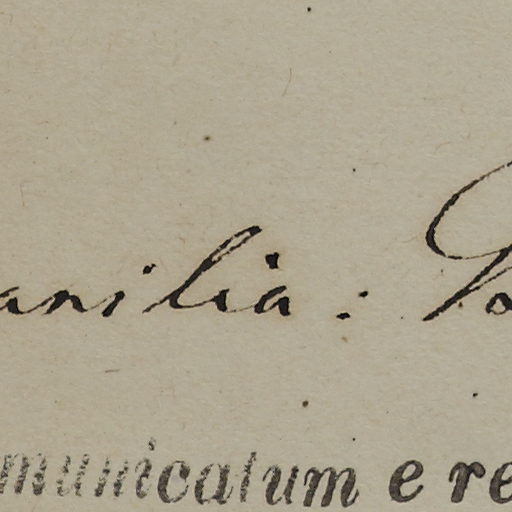 anilia:
municatum e re